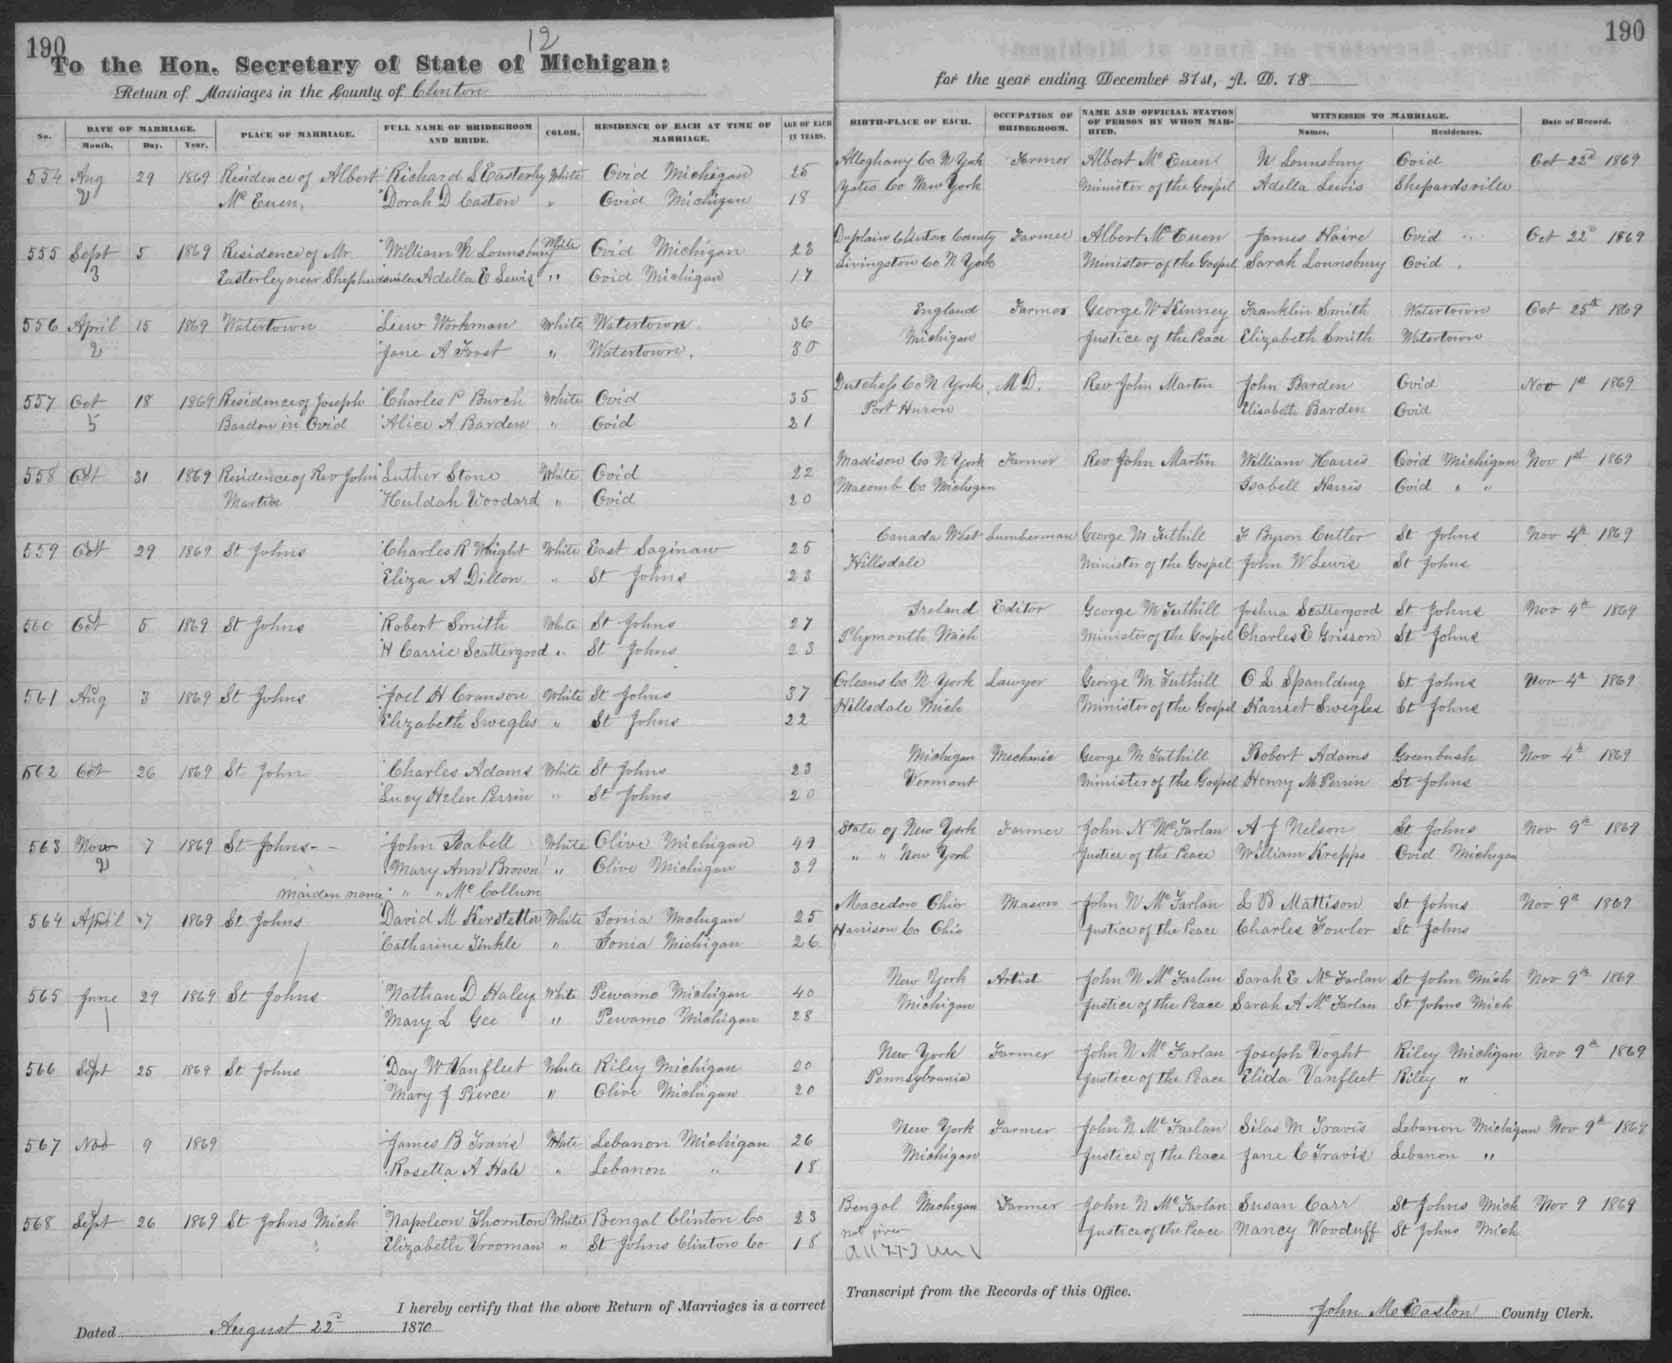 190
12
190
To the Hon. Secretary of State of Michigan:
for the year ending December 31st, A. D. 18
Return of Marriages in the County of Clinton
No. DATE OF MARRIAGE. Month. Day. Year. PLACE OF MARRIAGE. FULL NAME OF BRIDEGROOM AND BRIDE. COLOR. RESIDENCE OF EACH AT TIME OF MARRIAGE. AGE OF EACH IN YEARS. BIRTH-PLACE OF EACH. OCCUPATION OF BRIDEGROOM. NAME AND OFFICIAL STATION OF PERSON BY WHOM MARRIED. WITNESSES TO MARRIAGE. Names. Residences. Date of Record.
554 Aug 29 1869 Residence of Albert Richard L Easterly White Ovid Michigan 25 Alleghany Co N York Farmer Albert Mc Euen N Lounsbury Ovid Oct 22d 1869
2 Mc Euen. Dorah D Caston " Ovid Michigan 18 Yates Co New York Minister of the Gospel Adella Lewis Shepardsville
555 Sept 5 1869 Residence of Mr William N Lounsbury White Ovid Michigan 23 Duplain Clinton County Farmer Albert Mc Euen James Haire Ovid Oct 22d 1869
3 Easterley near Shepherdsville Adella E Lewis " Ovid Michigan 17 Livingston Co N York Minister of the Gospel Sarah Lounsbury Ovid
556 April 15 1869 Watertown Workman White Watertown 36 England Farmer George W Kinney Franklin Smith Watertown Oct 25th 1869
2 Jane A Forst " Watertown. 30 Michigan Justice of the Peace Elizabeth Smith Watertown
557 Oct 18 1869 Residence of Joseph Charles P Burch White Ovid 35 Dutchess Co N York M D. Rev John Martin John Barden Ovid Nov 1st 1869
5 Barden in Ovid Alice A Barden " Ovid 21 Port Huron Elisabeth Barden Ovid
558 Oct 31 1869 Residence of Rev John Luther Stone White Ovid 22 Madison Co N York Farmer Rev John Martin William Harris Ovid Michigan Nov 1st 1869
Martin Huldah Woodard " Ovid 20 Macomb Co Michigan Isabell Harris Ovid " "
559 Oct 29 1869 St Johns Charles R Whight White East Saginaw 25 Canada West Lumberman George M Tuthill F Byron Cutler St Johns Nov 4th 1869
Eliza A Dillon " St Johns 23 Hillsdale Minister of the Gospel John W Lewis St Johns
560 Oct 5 1869 St Johns Robert Smith White St Johns 27 Ireland Editor George M Tuthill Joshua Scattergood St Johns Nov 4th 1869
H Carrie Scattergood " St Johns 23 Plymouth Mich Minister of the Gospel Charles E Grisson St Johns
561 Aug 3 1869 St Johns Joel H Cranson White St Johns 37 Orleans Co N York Lawyer George M Tuthill O L Spaulding St Johns Nov 4th 1869
Elizabeth Swegles " St Johns 22 Hillsdale Mich Minister of the Gospel Harriet Swegles St Johns
562 Oct 26 1869 St John Charles Adams White St Johns 23 Michigan Mechanic George M Tuthill Robert Adams Greenbush Nov 4th 1869
Lucy Helen Perrin " St Johns 20 Vermont Minister of the Gospel Henry M Perrin St Johns
563 Nov 7 1869 St Johns John Isabell White Olive Michigan 49 State of New York Farmer John N Mc Farlan A J Nelson St Johns Nov 9th 1869
2 Mary Ann Brown " Olive Michigan 39 " " New York Justice of the Peace William Krepps Ovid Michigan
maiden name " " Mc Collum
564 April 7 1869 St Johns David M Kerstetter White Ionia Michigan 25 Macedon Ohio Mason John N Mc Farlan L B Mattison St Johns Nov 9th 1869
Catharine Tinkle " Ionia Michigan 26 Harrison Co Ohio Justice of the Peace Charles Fowler St Johns
565 June 29 1869 St Johns Nathan D Haley White Pewamo Michigan 40 New York Artist John N Mc Farlan Sarah E Mc Farlan St John Mich Nov 9th 1869
Mary L Gee " Pewamo Michigan 28 Michigan Justice of the Peace Sarah A Mc Farlan St Johns Mich
566 Sept 25 1869 St Johns Day W Vanfleet White Riley Michigan 20 New York Farmer John N Mc Farlan Joseph Voght Riley Michigan Nov 9th 1869
Mary J Pierce " Olive Michigan 20 Pennsylvania Justice of the Peace Elida Vanfleet Riley "
567 Nov 9 1869 James B Travis White Lebanon Michigan 26 New York Farmer John N Mc Farlan Silas M Travis Lebanon Michigan Nov 9th 1869
Rosetta A Hale " Lebanon " 18 Michigan Justice of the Peace Jane C Travis Lebanon "
568 Sept 26 1869 St Johns Mich Napoleon Thornton White Bengal Clinton Co 23 Bengal Michigan Farmer John N Mc Farlan Susan Carr St Johns Mich Nov 9 1869
Elizabeth Vrooman " St Johns Clinton Co 18 not given Justice of the Peace Nancy Woodruff St Johns Mich
I hereby certify that the above Return of Marriages is a correct Transcript from the Records of this Office.
Dated August 22d 1870
John McEaslon County Clerk.